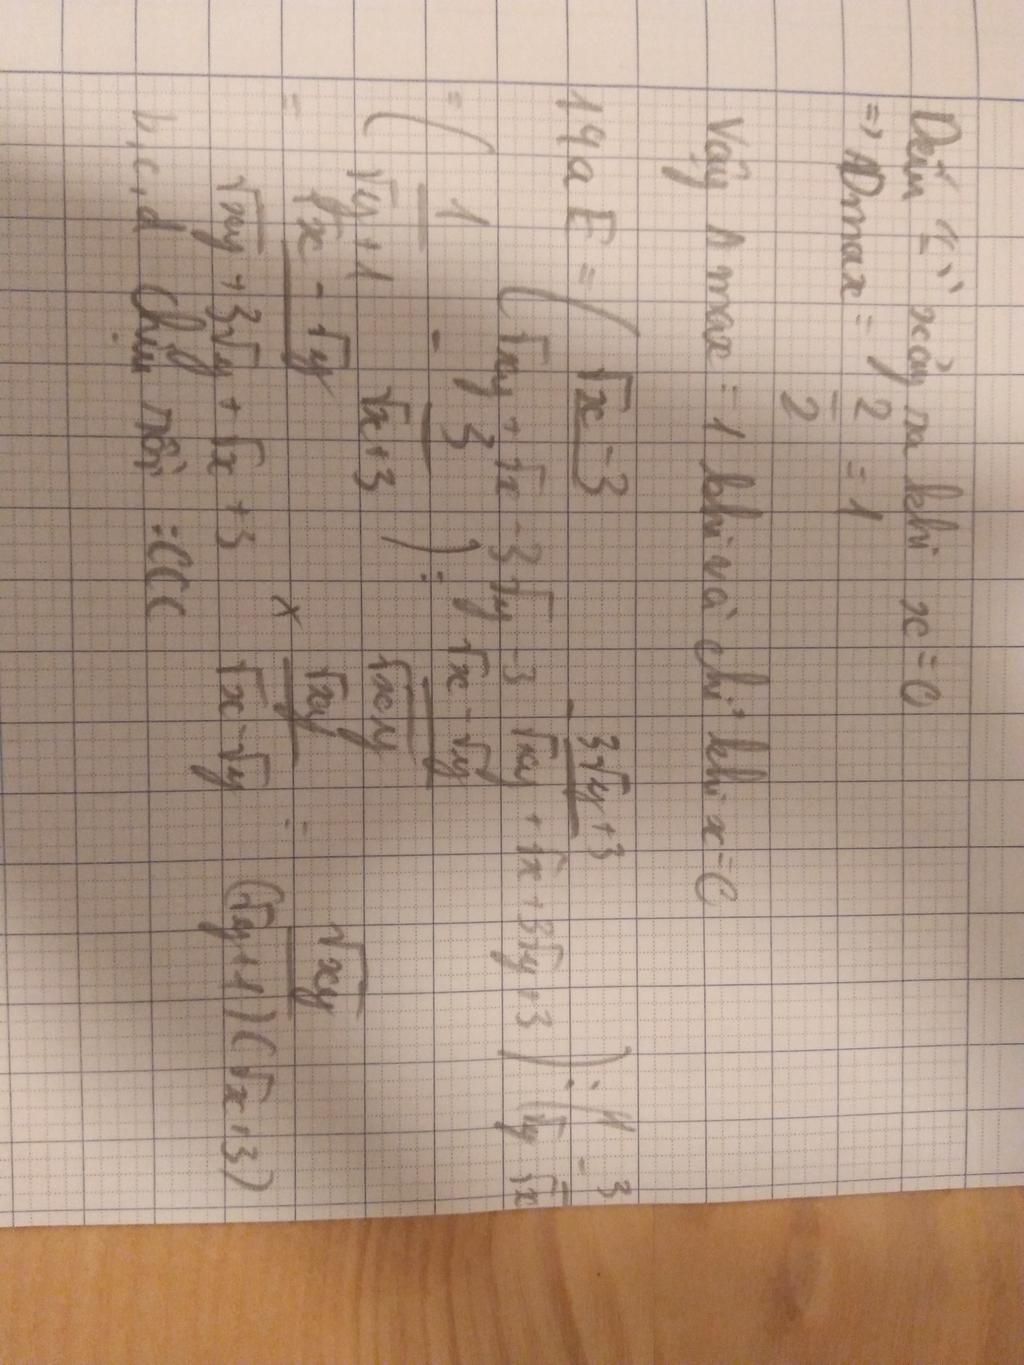 Dấu "=" xảy ra khi x = 0
=> Dmax = 2/2 = 1
Vậy A max = 1 khi và chỉ khi x = 0
19a E = ( (√x - 3)/(√xy + √x - 3√y - 3) - (3√y + 3)/(√xy + √x + 3√y + 3) ) : ( 1/√y - 3/√x
= ( 1/(√y + 1) - 3/(√x + 3) ) : (√x - √y)/√xy
= (√x - √y)/(√xy + 3√y + √x + 3) × √xy/(√x - √y) = √xy/((√y + 1)(√x + 3)
b, c, d Chịu rồi :(((